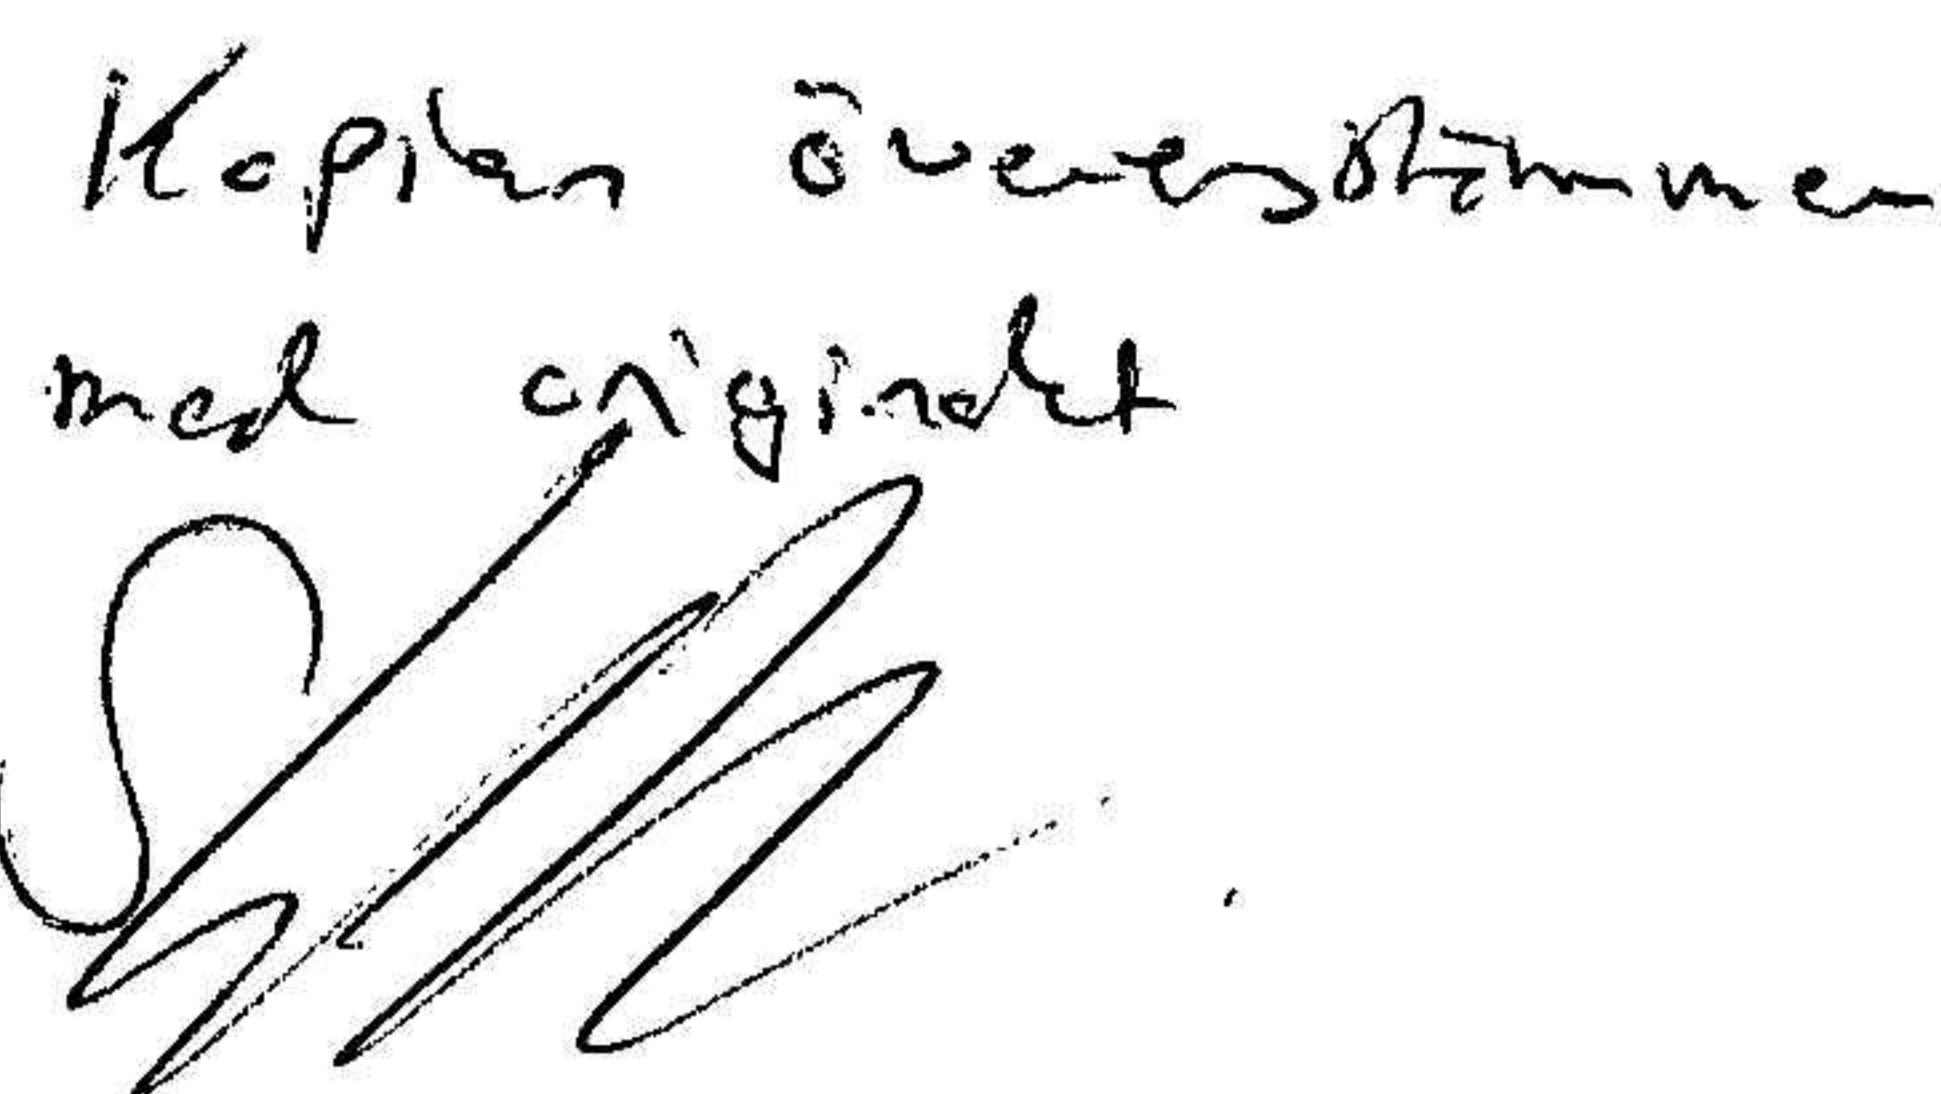 Kopian överensstämmer
med originalet